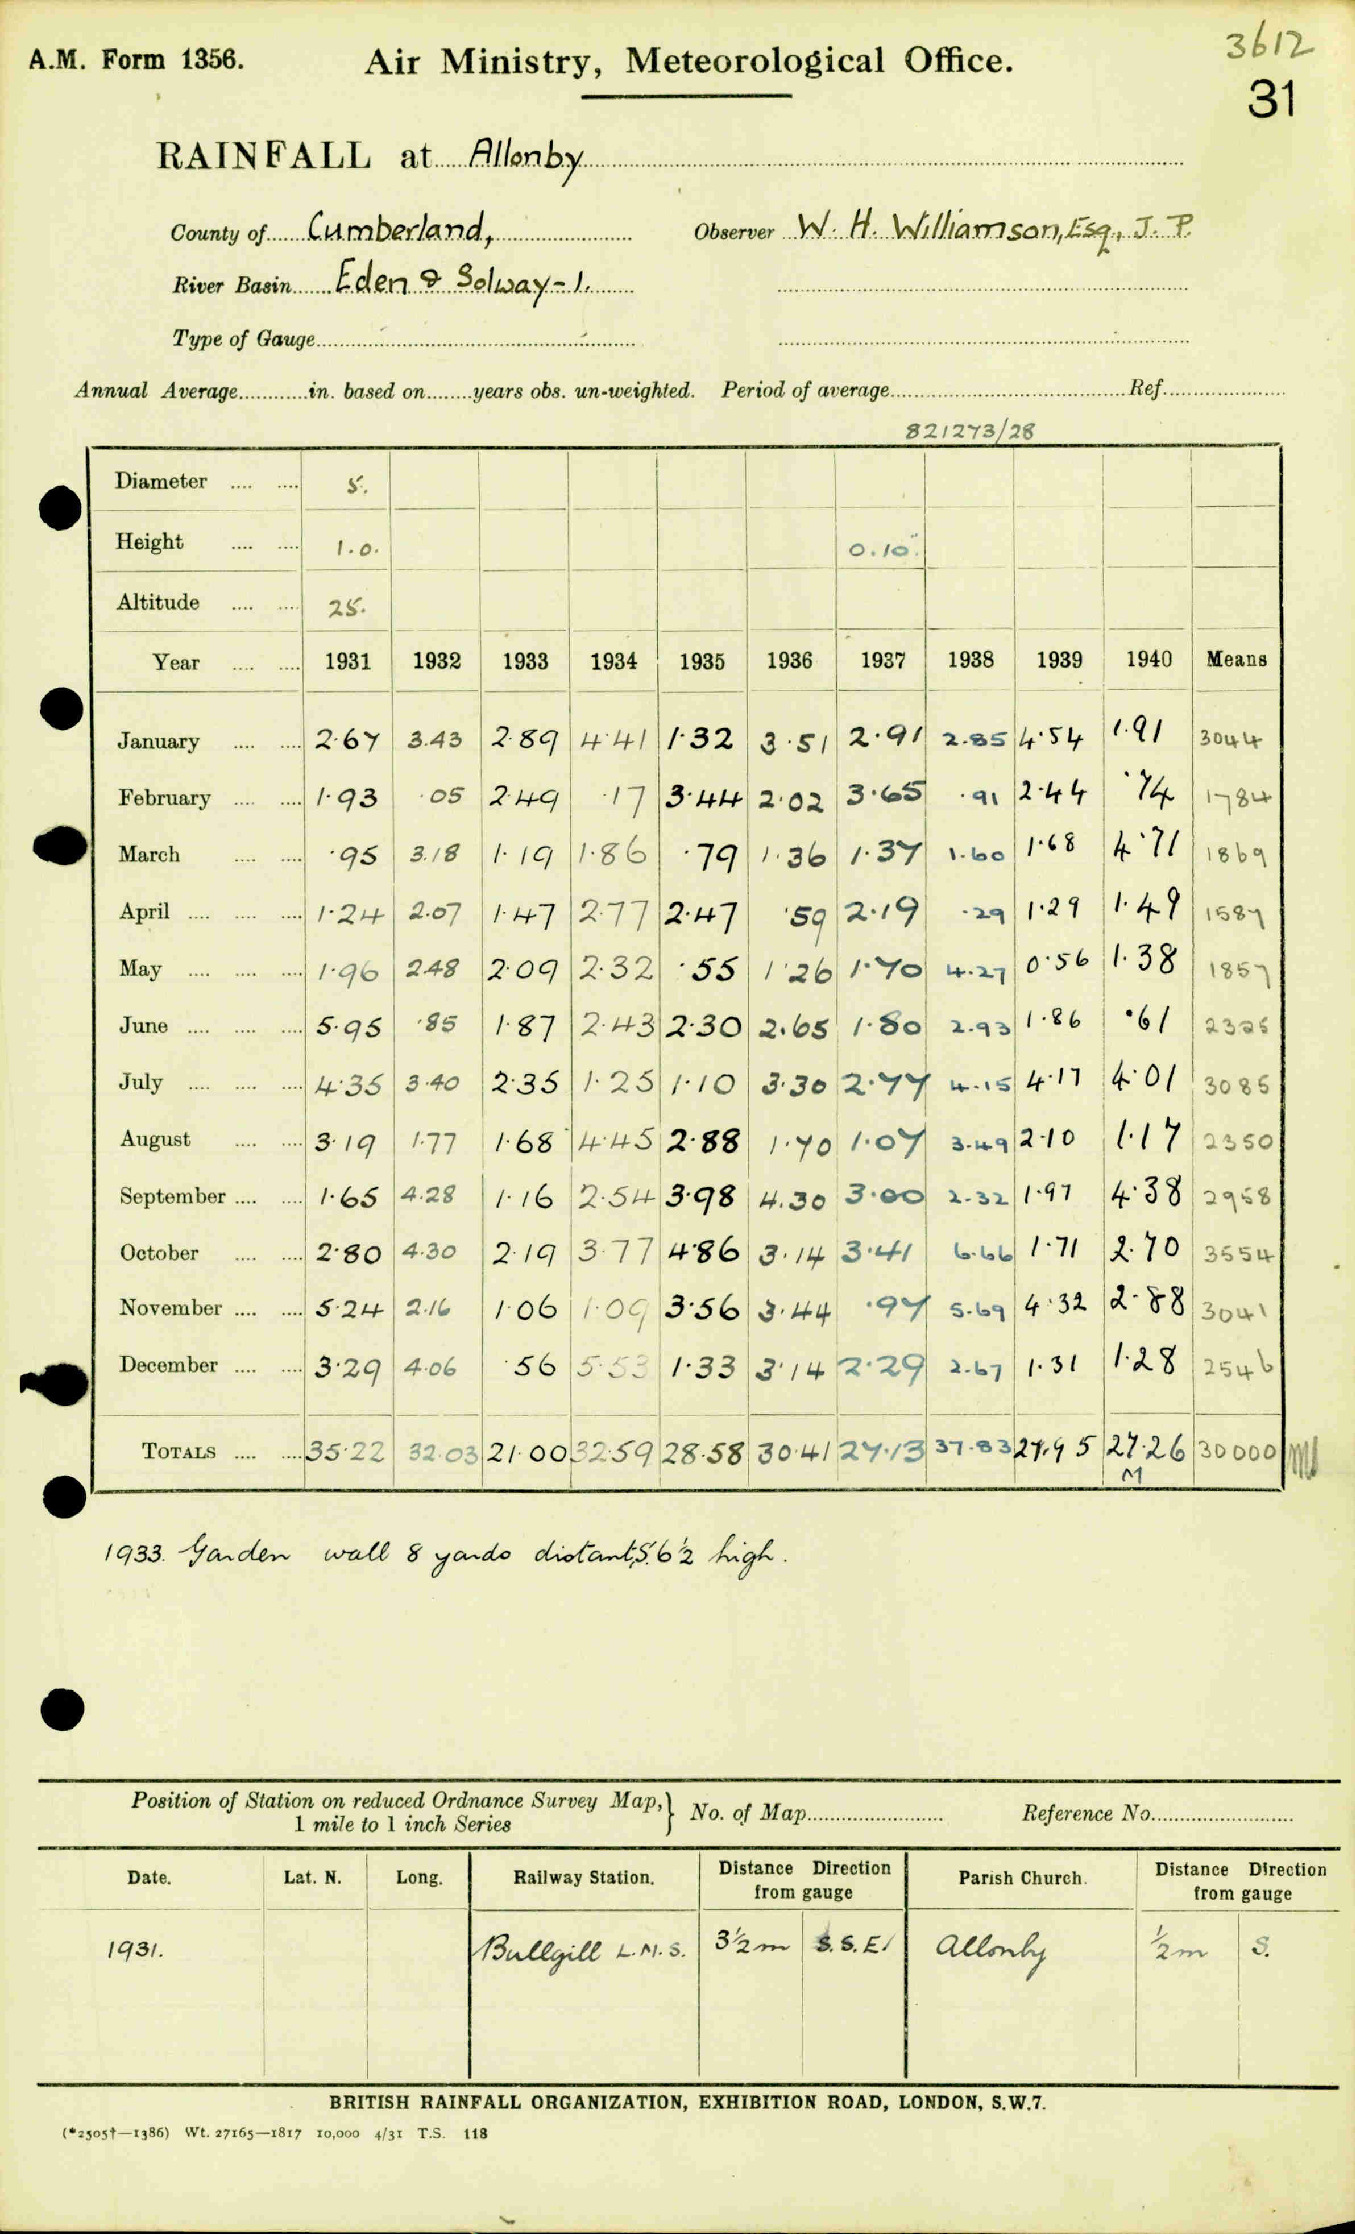 3612
A.M. Form 1356. Air Ministry, Meteorological Office.
31
RAINFALL at Allonby
County of Cumberland, Observer W. H. Williamson, Esq., J. P.
River Basin Eden & Solway-1.
Type of Gauge
Annual Average in. based on years obs. un-weighted. Period of average Ref.
821273/28
Diameter 5.
Height 1.0. 0.10".
Altitude 25.
Year 1931 1932 1933 1934 1935 1936 1937 1938 1939 1940 Means
January 2.67 3.43 2.89 4.41 1.32 3.51 2.91 2.85 4.54 1.91 3044
February 1.93 .05 2.49 .17 3.44 2.02 3.65 .91 2.44 .74 1784
March .95 3.18 1.19 1.86 .79 1.36 1.37 1.60 1.68 4.71 1869
April 1.24 2.07 1.47 2.77 2.47 .59 2.19 .29 1.29 1.49 1587
May 1.96 2.48 2.09 2.32 .55 1.26 1.70 4.27 0.56 1.38 1857
June 5.95 .85 1.87 2.43 2.30 2.65 1.80 2.93 1.86 .61 2325
July 4.35 3.40 2.35 1.25 1.10 3.30 2.77 4.15 4.17 4.01 3085
August 3.19 1.77 1.68 4.45 2.88 1.70 1.07 3.49 2.10 1.17 2350
September 1.65 4.28 1.16 2.54 3.98 4.30 3.00 2.32 1.97 4.38 2958
October 2.80 4.30 2.19 3.77 4.86 3.14 3.41 6.66 1.71 2.70 3554
November 5.24 2.16 1.06 1.09 3.56 3.44 .97 5.69 4.32 2.88 3041
December 3.29 4.06 .56 5.53 1.33 3.14 2.29 2.67 1.31 1.28 2546
TOTALS 35.22 32.03 21.00 32.59 28.58 30.41 27.13 37.83 27.95 27.26 30000
M
1933. Garden wall 8 yards distant, 5.6½ high.
Position of Station on reduced Ordnance Survey Map, } No. of Map Reference No.
1 mile to 1 inch Series
Date. Lat. N. Long. Railway Station. Distance Direction from gauge Parish Church. Distance Direction from gauge
1931. Bullgill L.M.S. 3½m S.S.E. Allonby ½m S.
BRITISH RAINFALL ORGANIZATION, EXHIBITION ROAD, LONDON, S.W.7.
(*2505†—1386) Wt. 27165—1817 10,000 4/31 T.S. 118